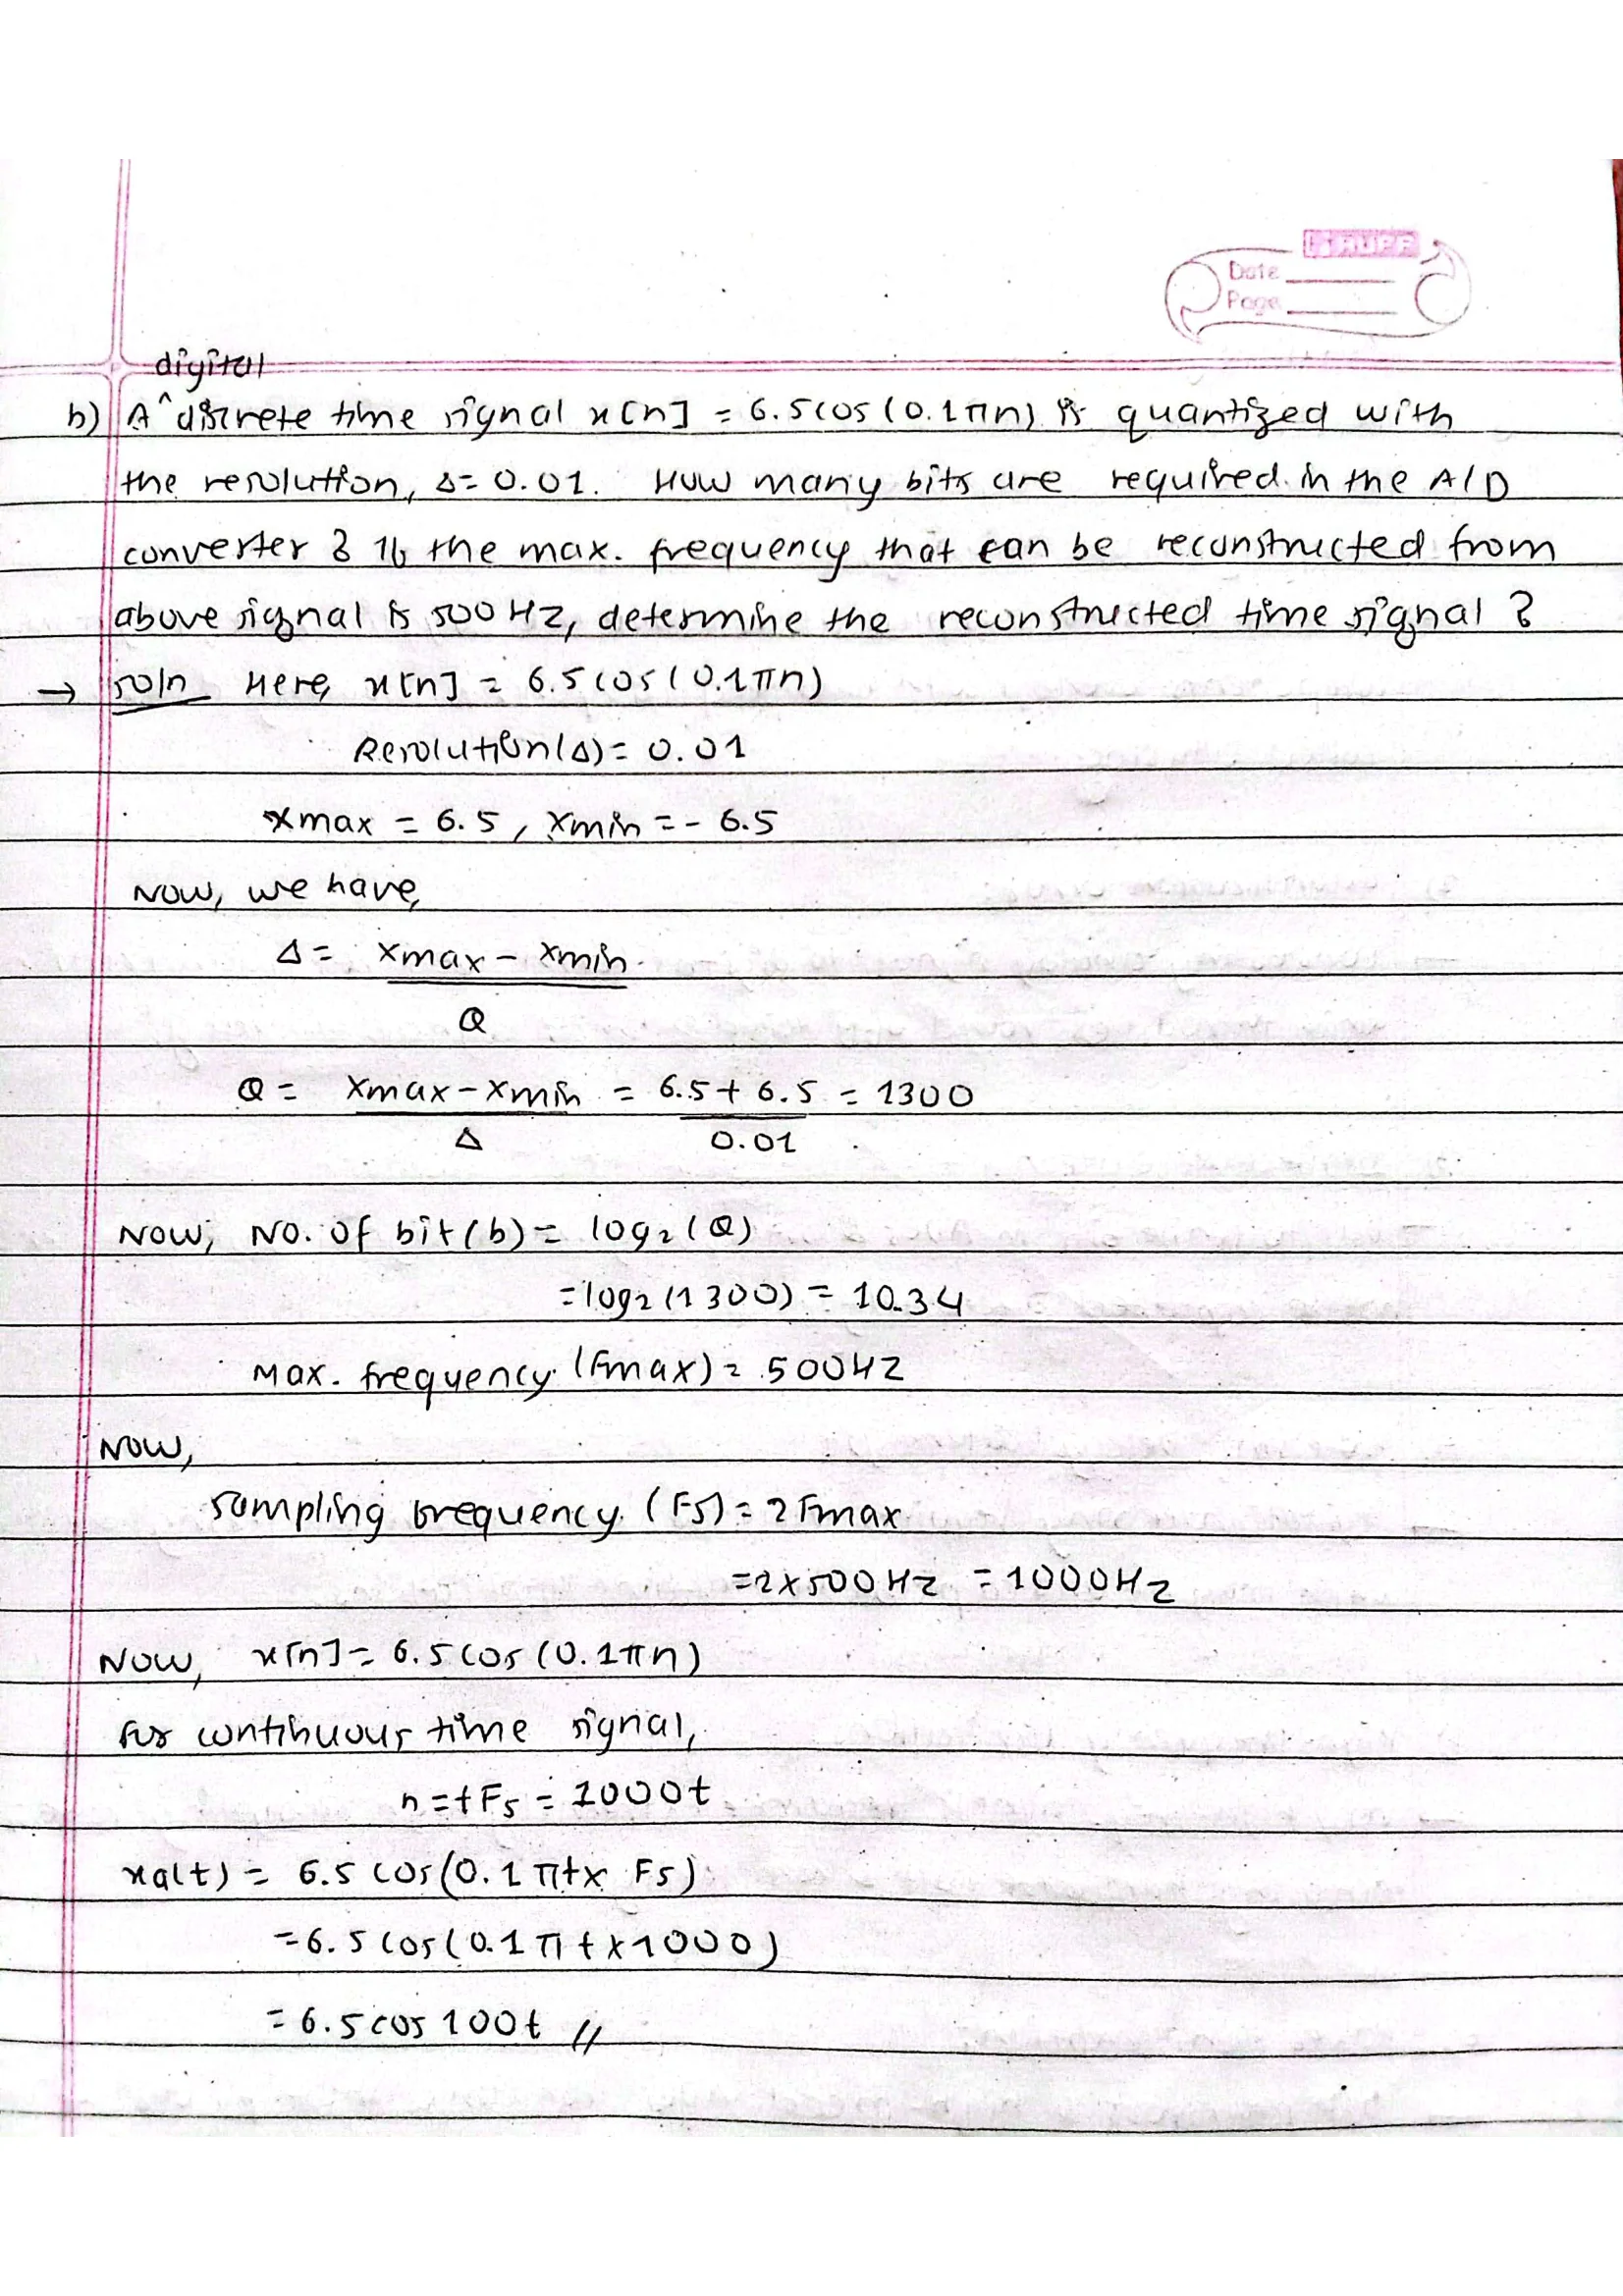 Date
Page
digital
b) A ^ discrete time signal x[n] = 6.5cos(0.1πn) is quantized with
the resolution, Δ= 0.01. How many bits are required in the A/D
converter ? If the max. frequency that can be reconstructed from
above signal is 500 Hz, determine the reconstructed time signal ?
→ soln Here, x[n] = 6.5cos(0.1πn)
Resolution(Δ)= 0.01
xmax = 6.5, xmin = - 6.5
Now, we have,
Δ = xmax - xmin
Q
Q = xmax - xmin = 6.5 + 6.5 = 1300
Δ 0.01
Now, No. of bit(b) = log2(Q)
= log2(1300) = 10.34
Max. frequency (Fmax) = 500HZ
Now,
sampling frequency (Fs) = 2Fmax
= 2x500HZ = 1000HZ
Now, x[n] = 6.5cos(0.1πn)
for continuous time signal,
n = tFs = 1000t
xa(t) = 6.5 cos(0.1πt x Fs)
= 6.5cos(0.1πt x1000)
= 6.5cos 100t //